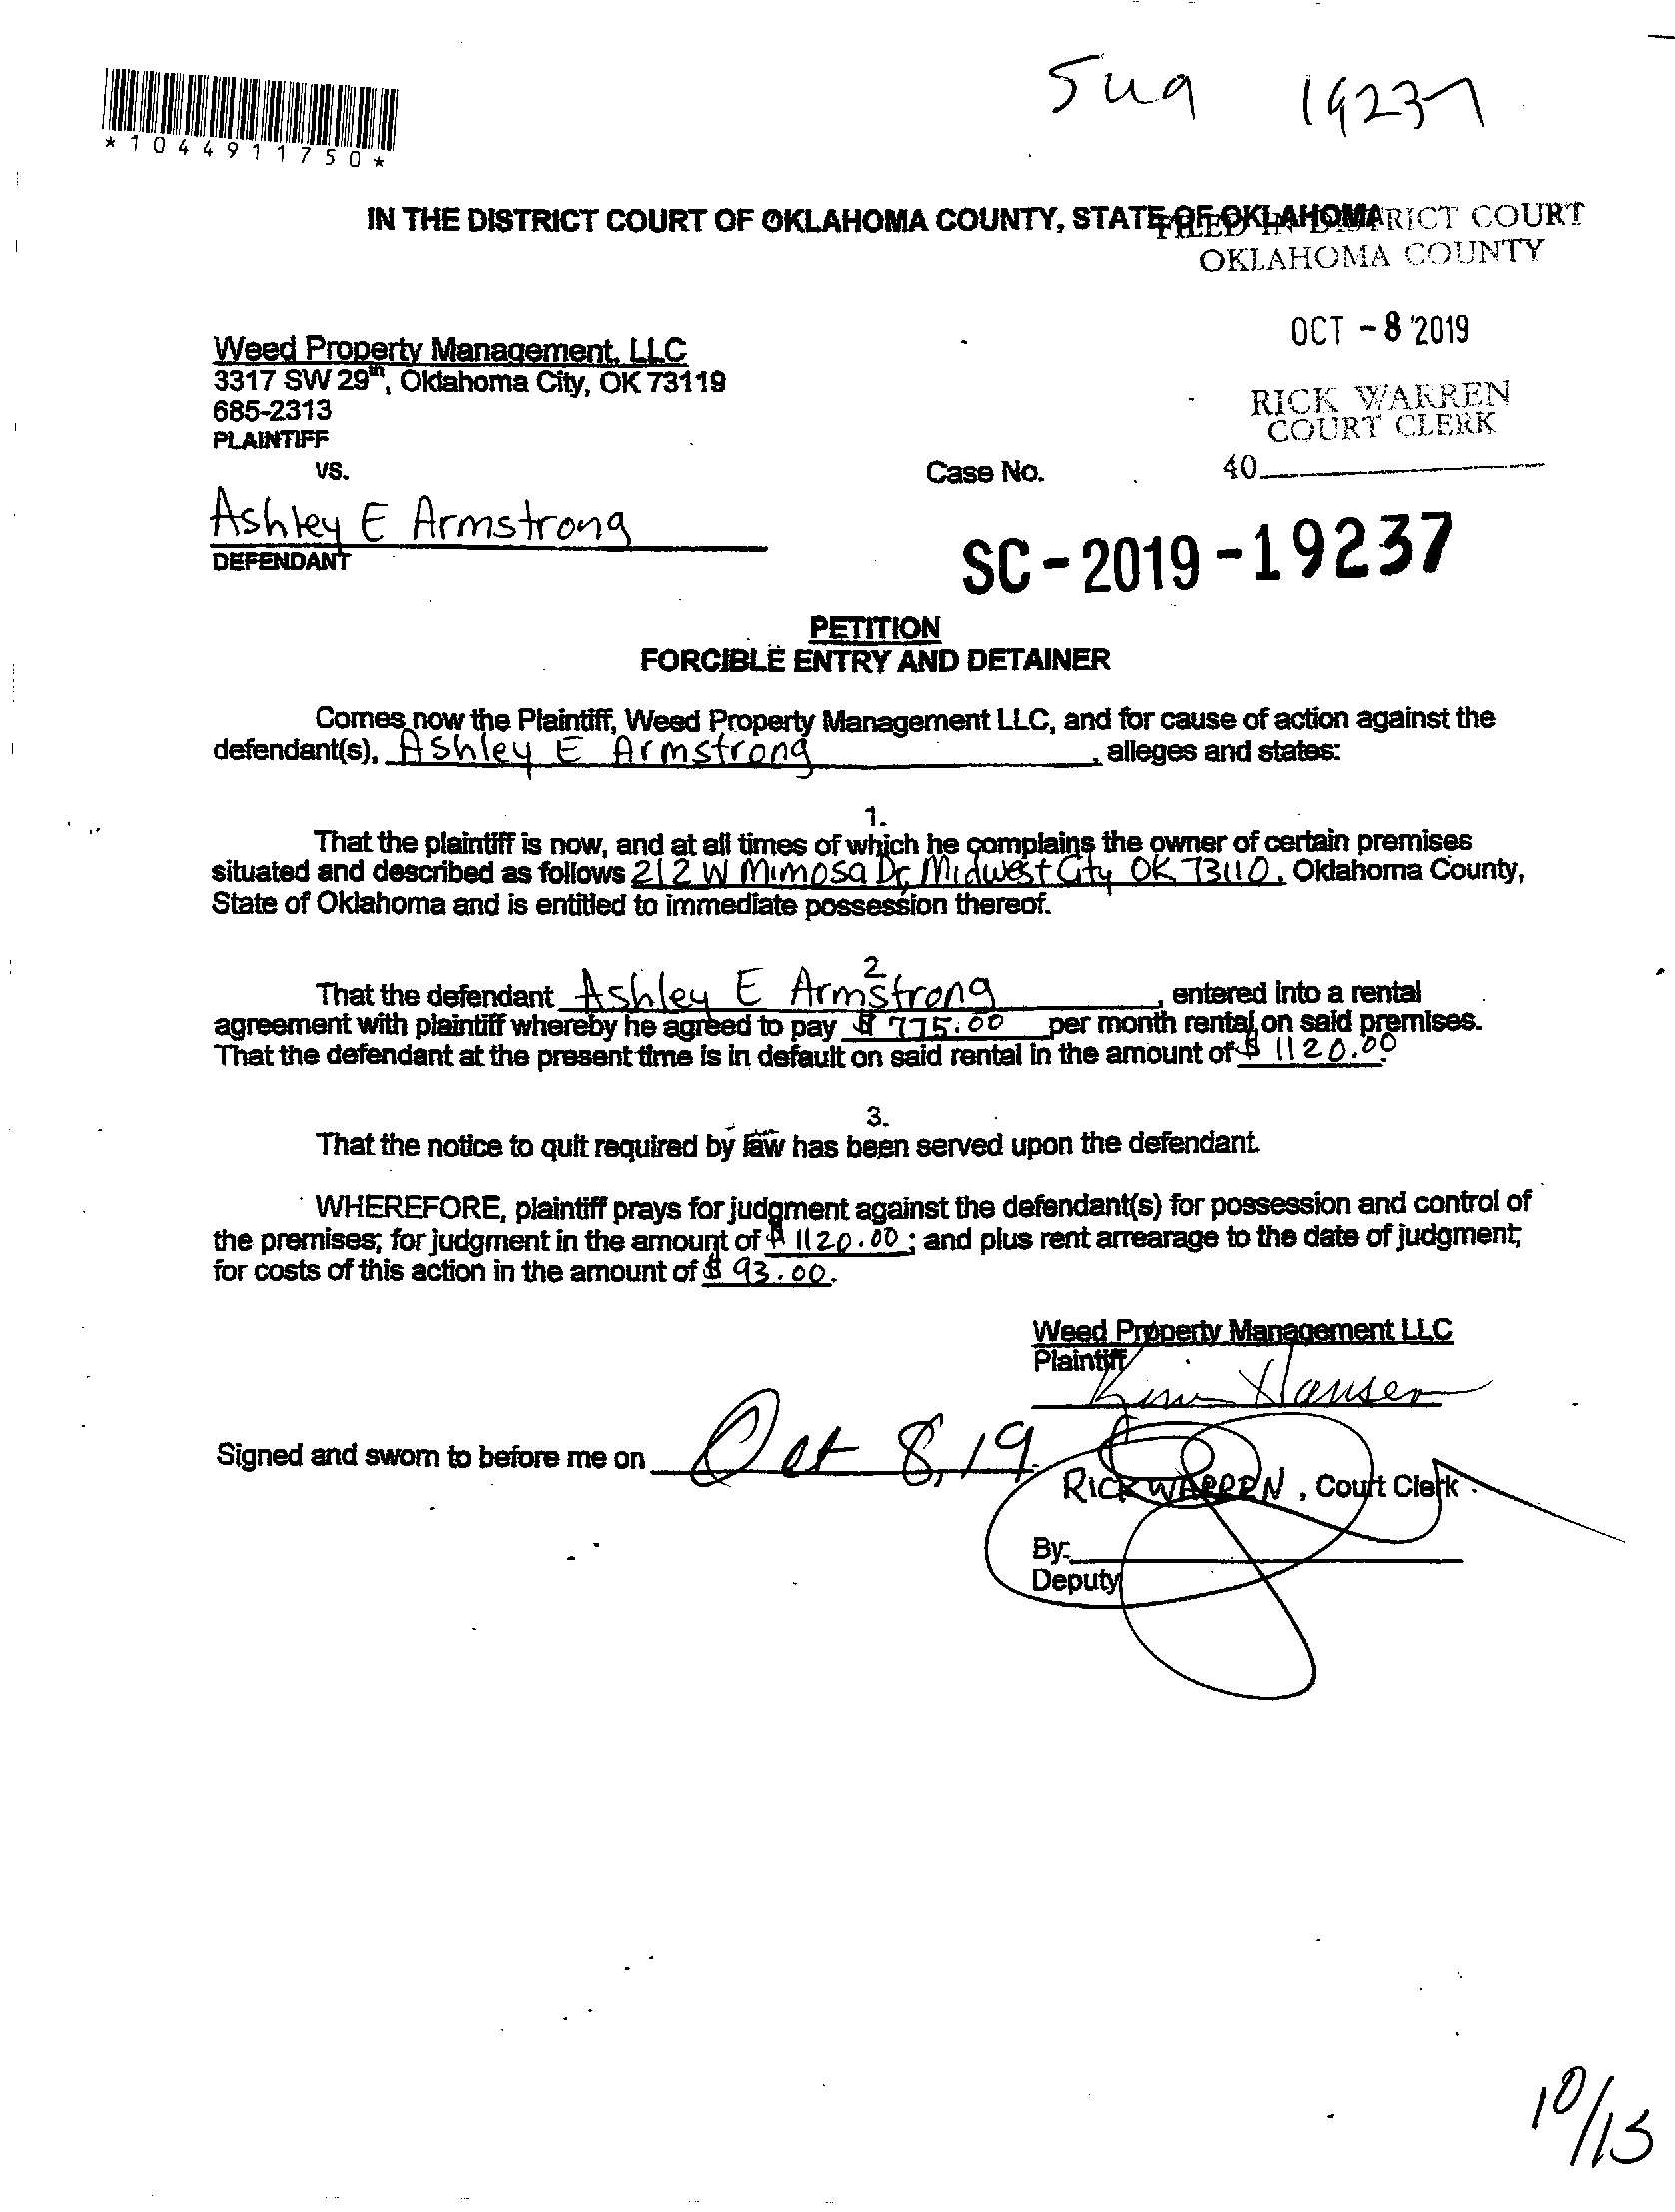 *1044911750*
19237
IN THE DISTRICT COURT OF OKLAHOMA COUNTY, STATE OF OKLAHOMA
FILED IN DISTRICT COURT
OKLAHOMA COUNTY
OCT -8 '2019
Weed Property Management, LLC
3317 SW 29th, Oklahoma City, OK 73119
685-2313
RICK WARREN
COURT CLERK
PLAINTIFF
vs.
Case No.
40
Ashley E Armstrong
DEFENDANT
SC-2019-19237
PETITION
FORCIBLE ENTRY AND DETAINER
Comes now the Plaintiff, Weed Property Management LLC, and for cause of action against the
defendant(s), Ashley E Armstrong, alleges and states:
1.
That the plaintiff is now, and at all times of which he complains the owner of certain premises
situated and described as follows 212 W Mimosa Dr, Midwest City OK 73110, Oklahoma County,
State of Oklahoma and is entitled to immediate possession thereof.
2
That the defendant Ashley E Armstrong, entered into a rental
agreement with plaintiff whereby he agreed to pay $ 775.00 per month rental on said premises.
That the defendant at the present time is in default on said rental in the amount of $ 1120.00.
3.
That the notice to quit required by law has been served upon the defendant.
WHEREFORE, plaintiff prays for judgment against the defendant(s) for possession and control of
the premises; for judgment in the amount of $ 1120.00; and plus rent arrearage to the date of judgment;
for costs of this action in the amount of $ 93.00.
Weed Property Management LLC
Plaintiff
Kim Hansen
Signed and sworn to before me on Oct 8, 19
RICK WARREN, Court Clerk
By:
Deputy
10/15